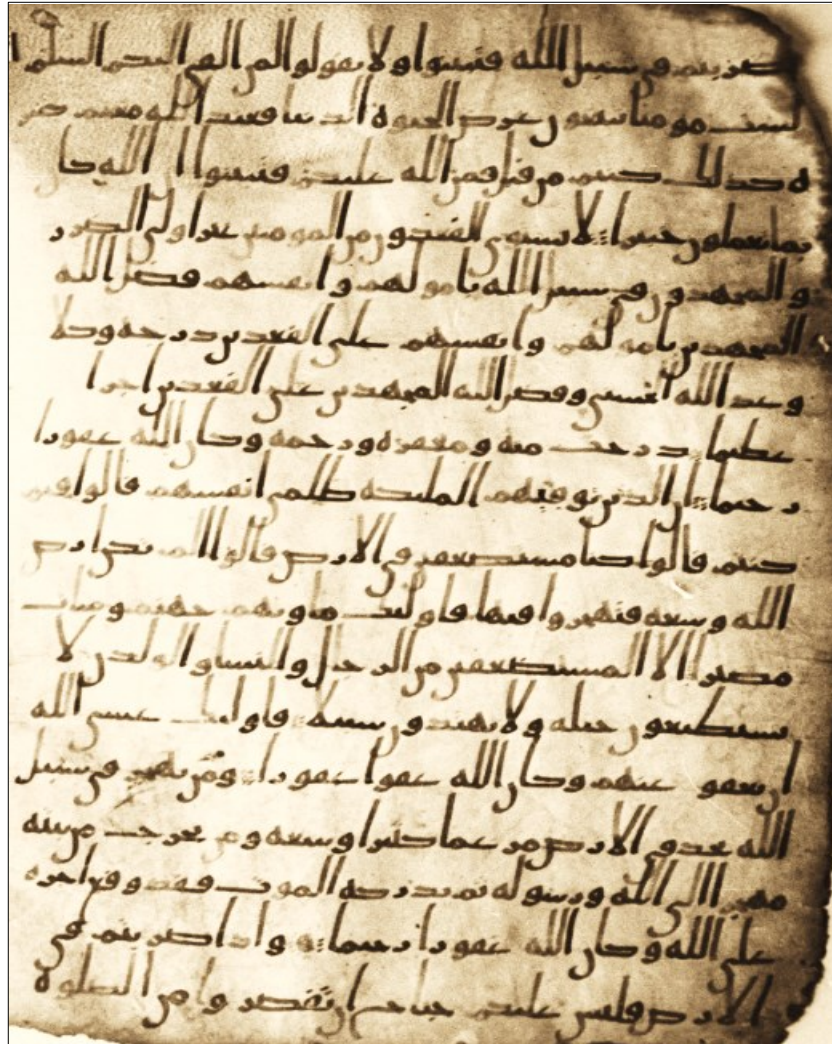 ضربتم في سبيل الله فتبينوا ولا تقولوا لمن القى اليكم السلم
لست مومنا تبتغون عرض الحيوة الدنيا فعند الله مغنم كثير
ه كذلك كنتم من قبل فمن الله عليكم فتبينوا ان الله كان
بما تعملون خبيرا لا يستوي القعدون من المومنين غير اولي الضرر
والمجهدون في سبيل الله بامولهم وانفسهم فضل الله
المجهدين بامولهم وانفسهم على القعدين درجه وكلا
وعد الله الحسنى وفضل الله المجهدين على القعدين اجرا
عظيما درجت منه ومغفره ورحمه وكان الله غفورا
رحيما ان الذين توفيهم الملئكه ظلمي انفسهم قالوا فيم
كنتم قالوا كنا مستضعفين في الارض قالوا الم تكن ارض
الله وسعه فتهجروا فيها فاولئك ماويهم جهنم وسات
مصيرا الا المستضعفين من الرجال والنسا والولدن لا
يستطيعون حيله ولا يهتدون سبيلا فاولئك عسى الله
ان يعفو عنهم وكان الله عفوا غفورا ومن يهجر في سبيل
الله يجد في الارض مرغما كثيرا وسعه ومن يخرج من بيته
مهجرا الى الله ورسوله ثم يدركه الموت فقد وقع اجره
على الله وكان الله غفورا رحيما واذا ضربتم في
الارض فليس عليكم جناح ان تقصروا من الصلوه